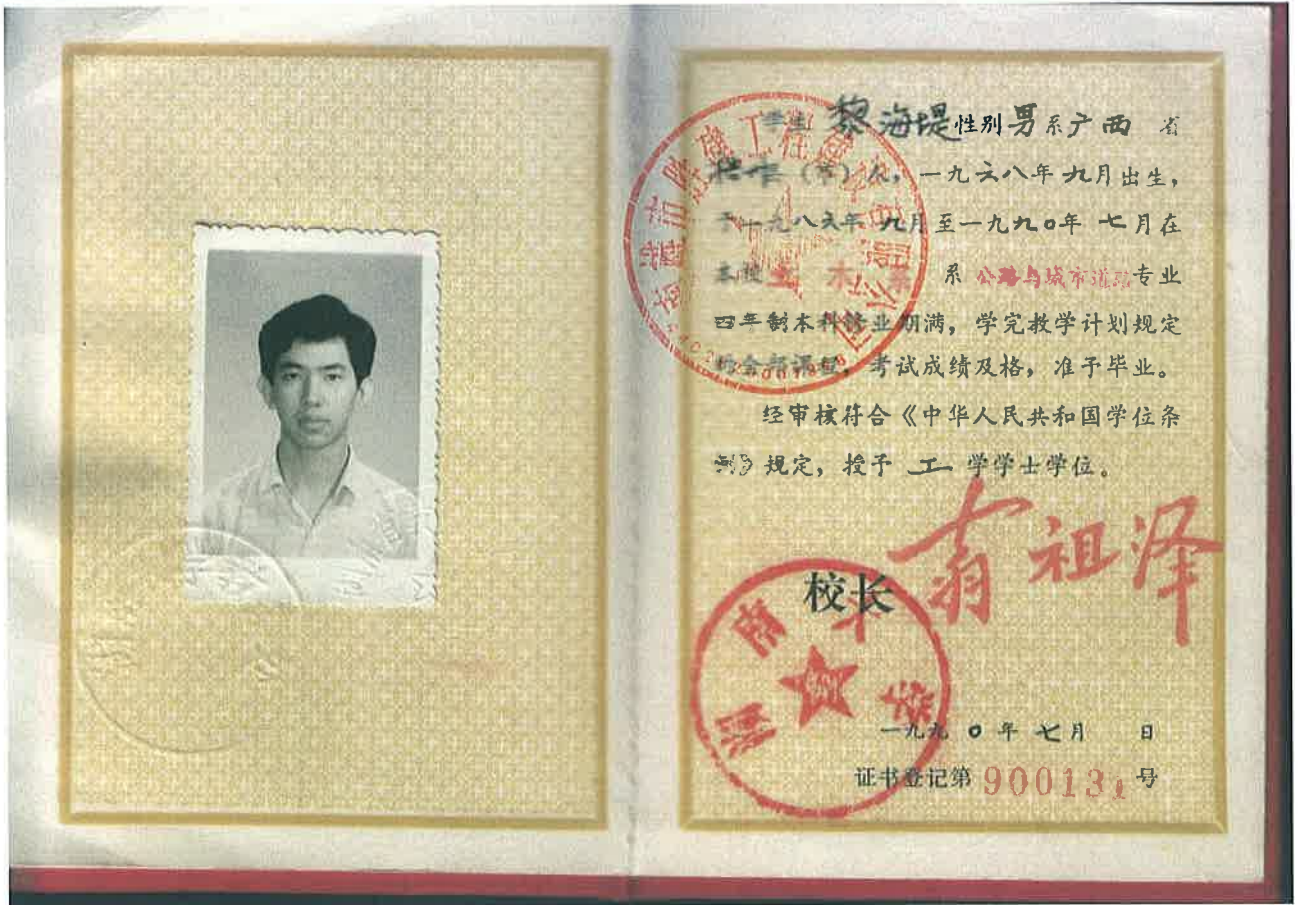 学生 黎海堤 性别 男 系 广西 省
(市)人，一九六八年九月出生，
于一九八六年 九月至一九九0年 七月在
本校土木系 系 公路与城市道路专业
四年制本科修业期满，学完教学计划规定
的全部课程，考试成绩及格，准予毕业。
经审核符合《中华人民共和国学位条
例》规定，授予 工 学学士学位。
校长 翁祖泽
湖南大学
一九九0年 七月 日
证书登记第 900131 号